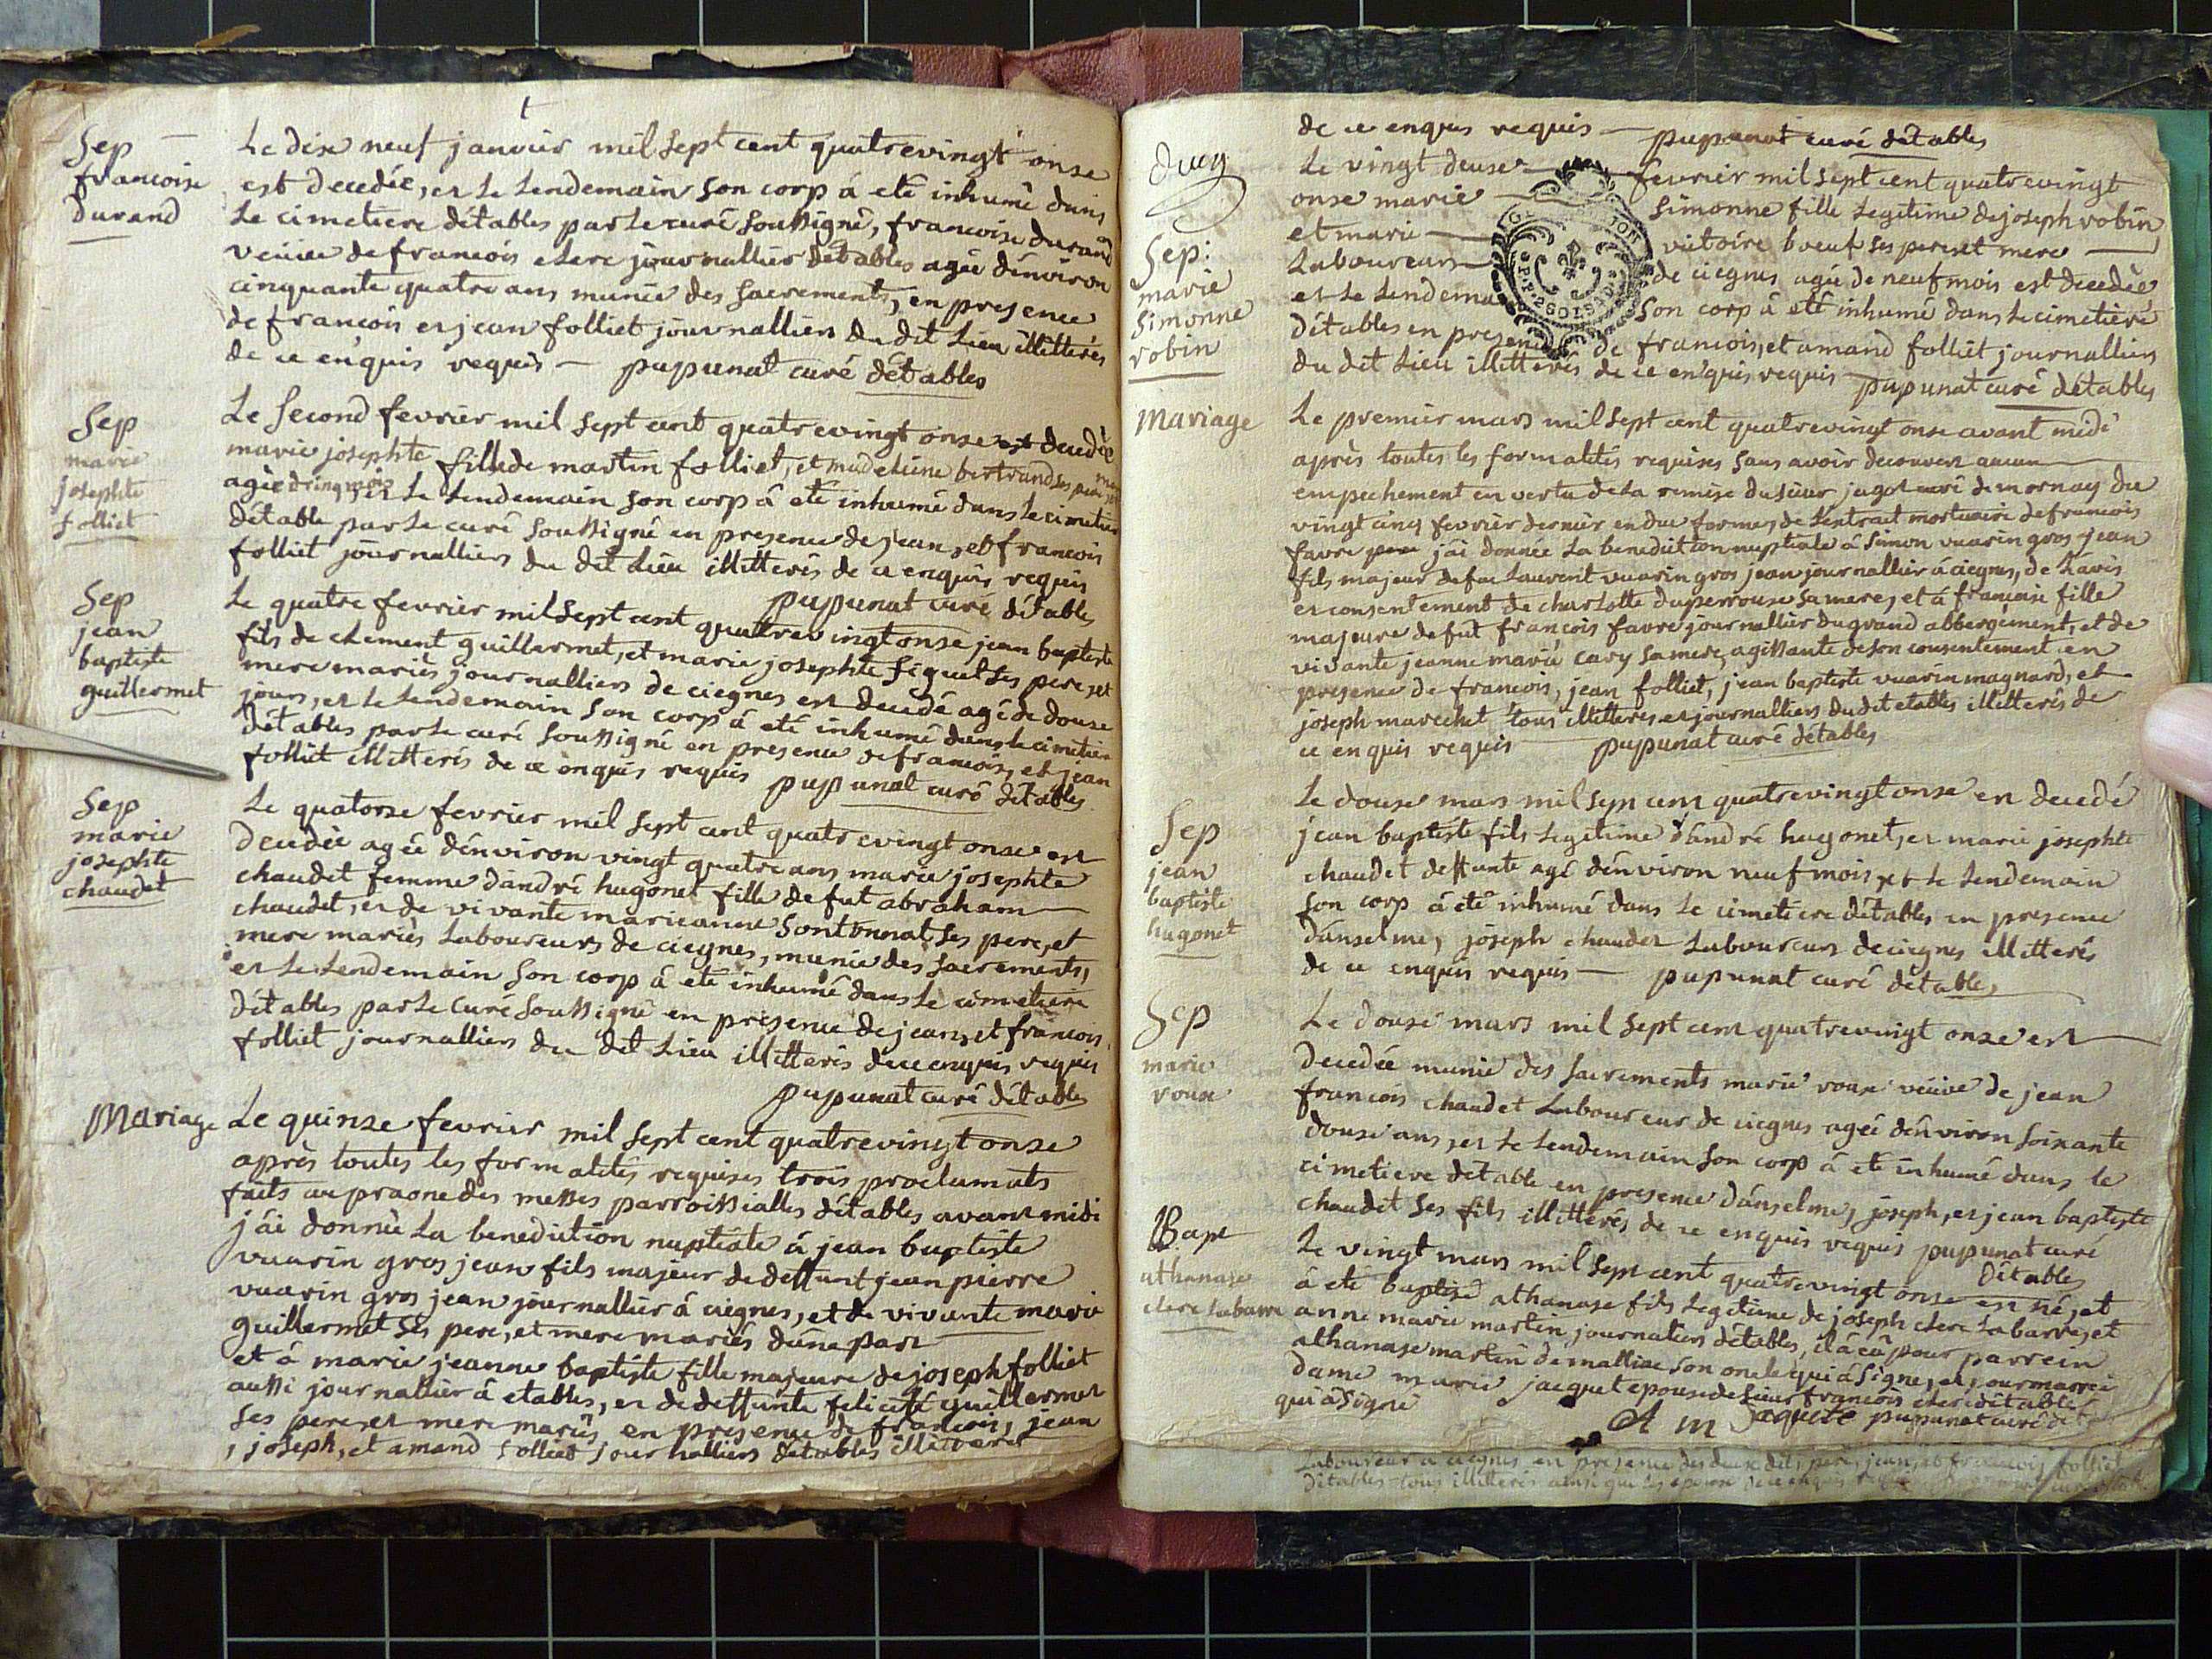 Sep
francoise
Durand
Le dixe neuf janvier mil sept cent quatrevingt onse
est decedée, et le lendemain son corp á eté inhumé dans
le cimetiere détables par le curé soussigné, francoise durand
veüve de francois clerc journallier détables agée dénviron
cinquante quatre ans munie des sacrements, en presence
de francois et jean folliet journalliers du dit lieu illitterés
de ce enquis requis — pupunat curé détables
Sep
marie
josephte
folliet
Le second fevrier mil sept cent quatrevingt onse est decedèe
marie josephte fille de martin folliet, et madeleine bertrand ses pere et mere
agée et le lendemain son corp á eté inhumé dans le cimetiere
détable par le curé soussigné en presence de jean, et francois
folliet journalliers du dit lieu illitterés de ce enquis requis
pupunat curé détables
Sep
jean
baptiste
guillermet
Le quatre fevrier mil sept cent quattrevingt onse jean baptiste
fils de clement guillermet, et marie josephte figuet ses pere, et
mere mariés journalliers de ciegnes est decedé agé de douse
jours, et le lendemain son corp á eté inhumé dans le cimetiere
détables par le curé soussigné en presence de francois, et jean
folliet illitterés de ce enquis requis pupunat curé détables
Sep
marie
josephte
chaudet
Le quatorse fevrier mil sept cent quatrevingt onse est
decedée agée dénviron vingt quatre ans marie josephte
chaudet femme dándré hugonet fille de fut abraham
chaudet, et de vivante marieanne sontonnat ses pere, et
mere mariés laboureurs de ciegnes, munie des sacrements,
et le lendemain son corp á eté inhumé dans le cimetiere
détables par le curé soussigné en presence de jean, et francois
folliet journalliers du dit lieu illitterés de ce enquis requis
pupunat curé détables
Mariage
Le quinse fevrier mil sept cent quatrevingt onse
après toutes les formalités requises trois proclamats
faits au praone des messes parroissialles détables avant midi
j'ái donnée la benediction nuptiale á jean baptiste
vuarin gros jean fils majeur de deffunt jean pierre
vuarin gros jean journallier á ciegnes, et de vivante marie
guillermet ses pere, et mere mariés dúne part
et á marie jeanne baptiste fille majeure de joseph folliet
aussi journallier á etables, et de deffunte felicité guillermet
ses pere, et mere mariés, en presence de francois, jean
, joseph, et amand folliet journalliers détables illitterés
de ce enquis requis — pupunat curé détables
Sep:
marie
simonne
robin
Le vingt deuse fevrier mil sept cent quatrevingt
onse marie simonne fille legitime de joseph robin
et marie victoire boeuf ses pere et mere
laboureurs de ciegnes agée de neuf mois est decedèe
et le lendema son corp á eté inhumé dans le cimetiere
détables en presence de francois, et amand folliet journalliers
du dit lieu illitterés de ce enquis requis pupunat curé détables
Mariage
Le premier mars mil sept cent quatrevingt onse avant midi
après toutes les formalités requises sans avoir decouvert aucun
empechement en vertu de la remise du sieur jagot curé de mornay du
vingt cinq fevrier dernier en due forme, de léxtrait mortuaire de francois
favre j'ái donnée la benediction nuptiale á simon vuarin gros jean
fils majeur de fut laurent vuarin gros jean journallier á ciegnes, de lávis
et consentement de charlotte duperrouse sa mere, et á francoise fille
majeure de fut francois favre journallier du grand abbergement, et de
vivante jeanne marie cary sa mere, agissante de son consentement en
presence de francois, jean folliet, jean baptiste vuarin magnard, et
joseph marechet tous illitterés et journalliers du dit etables illitterés de
ce enquis requis — pupunat curé détables
Sep
jean
baptiste
hugonet
Le douse mars mil sept cent quatrevingt onse est decedé
jean baptiste fils legitime dándré hugonet, et marie josephte
chaudet deffunte agé dénviron neuf mois, et le lendemain
son corp á eté inhumé dans le cimetiere détables en presence
dánselme, joseph chaudet laboureurs de ciegnes illitterés
de ce enquis requis — pupunat curé détables
Sep
marie
roux
Le douse mars mil sept cent quatrevingt onse est
decedée munie des sacrements marie roux veüve de jean
francois chaudet laboureur de ciegnes agée dénviron soixante
douse ans, et le lendemain son corp á eté inhumé dans le
cimetiere détable en presence dánselme, joseph, et jean baptiste
chaudet ses fils illitterés de ce enquis requis pupunat curé
détables
Bapt
athanase
clerc labarre
Le vingt mars mil sept cent quatrevingt onse est né, et
á eté baptisé athanase fils legitime de joseph clerc labarre, et
anne marie martin journaliers détables, il á eû pour parrein
athanase martin de malliac son oncle qui á signé, et pour marrei
dame marie jacquet epouse de sieur francois clerc détables
qui á signé
A m Jaquete pupunat curé
laboureur a ciegnes en presence des deux dits pere, jean, et francois folliet
détables tous illitterés ainsi que les epoux de ce enquis requis